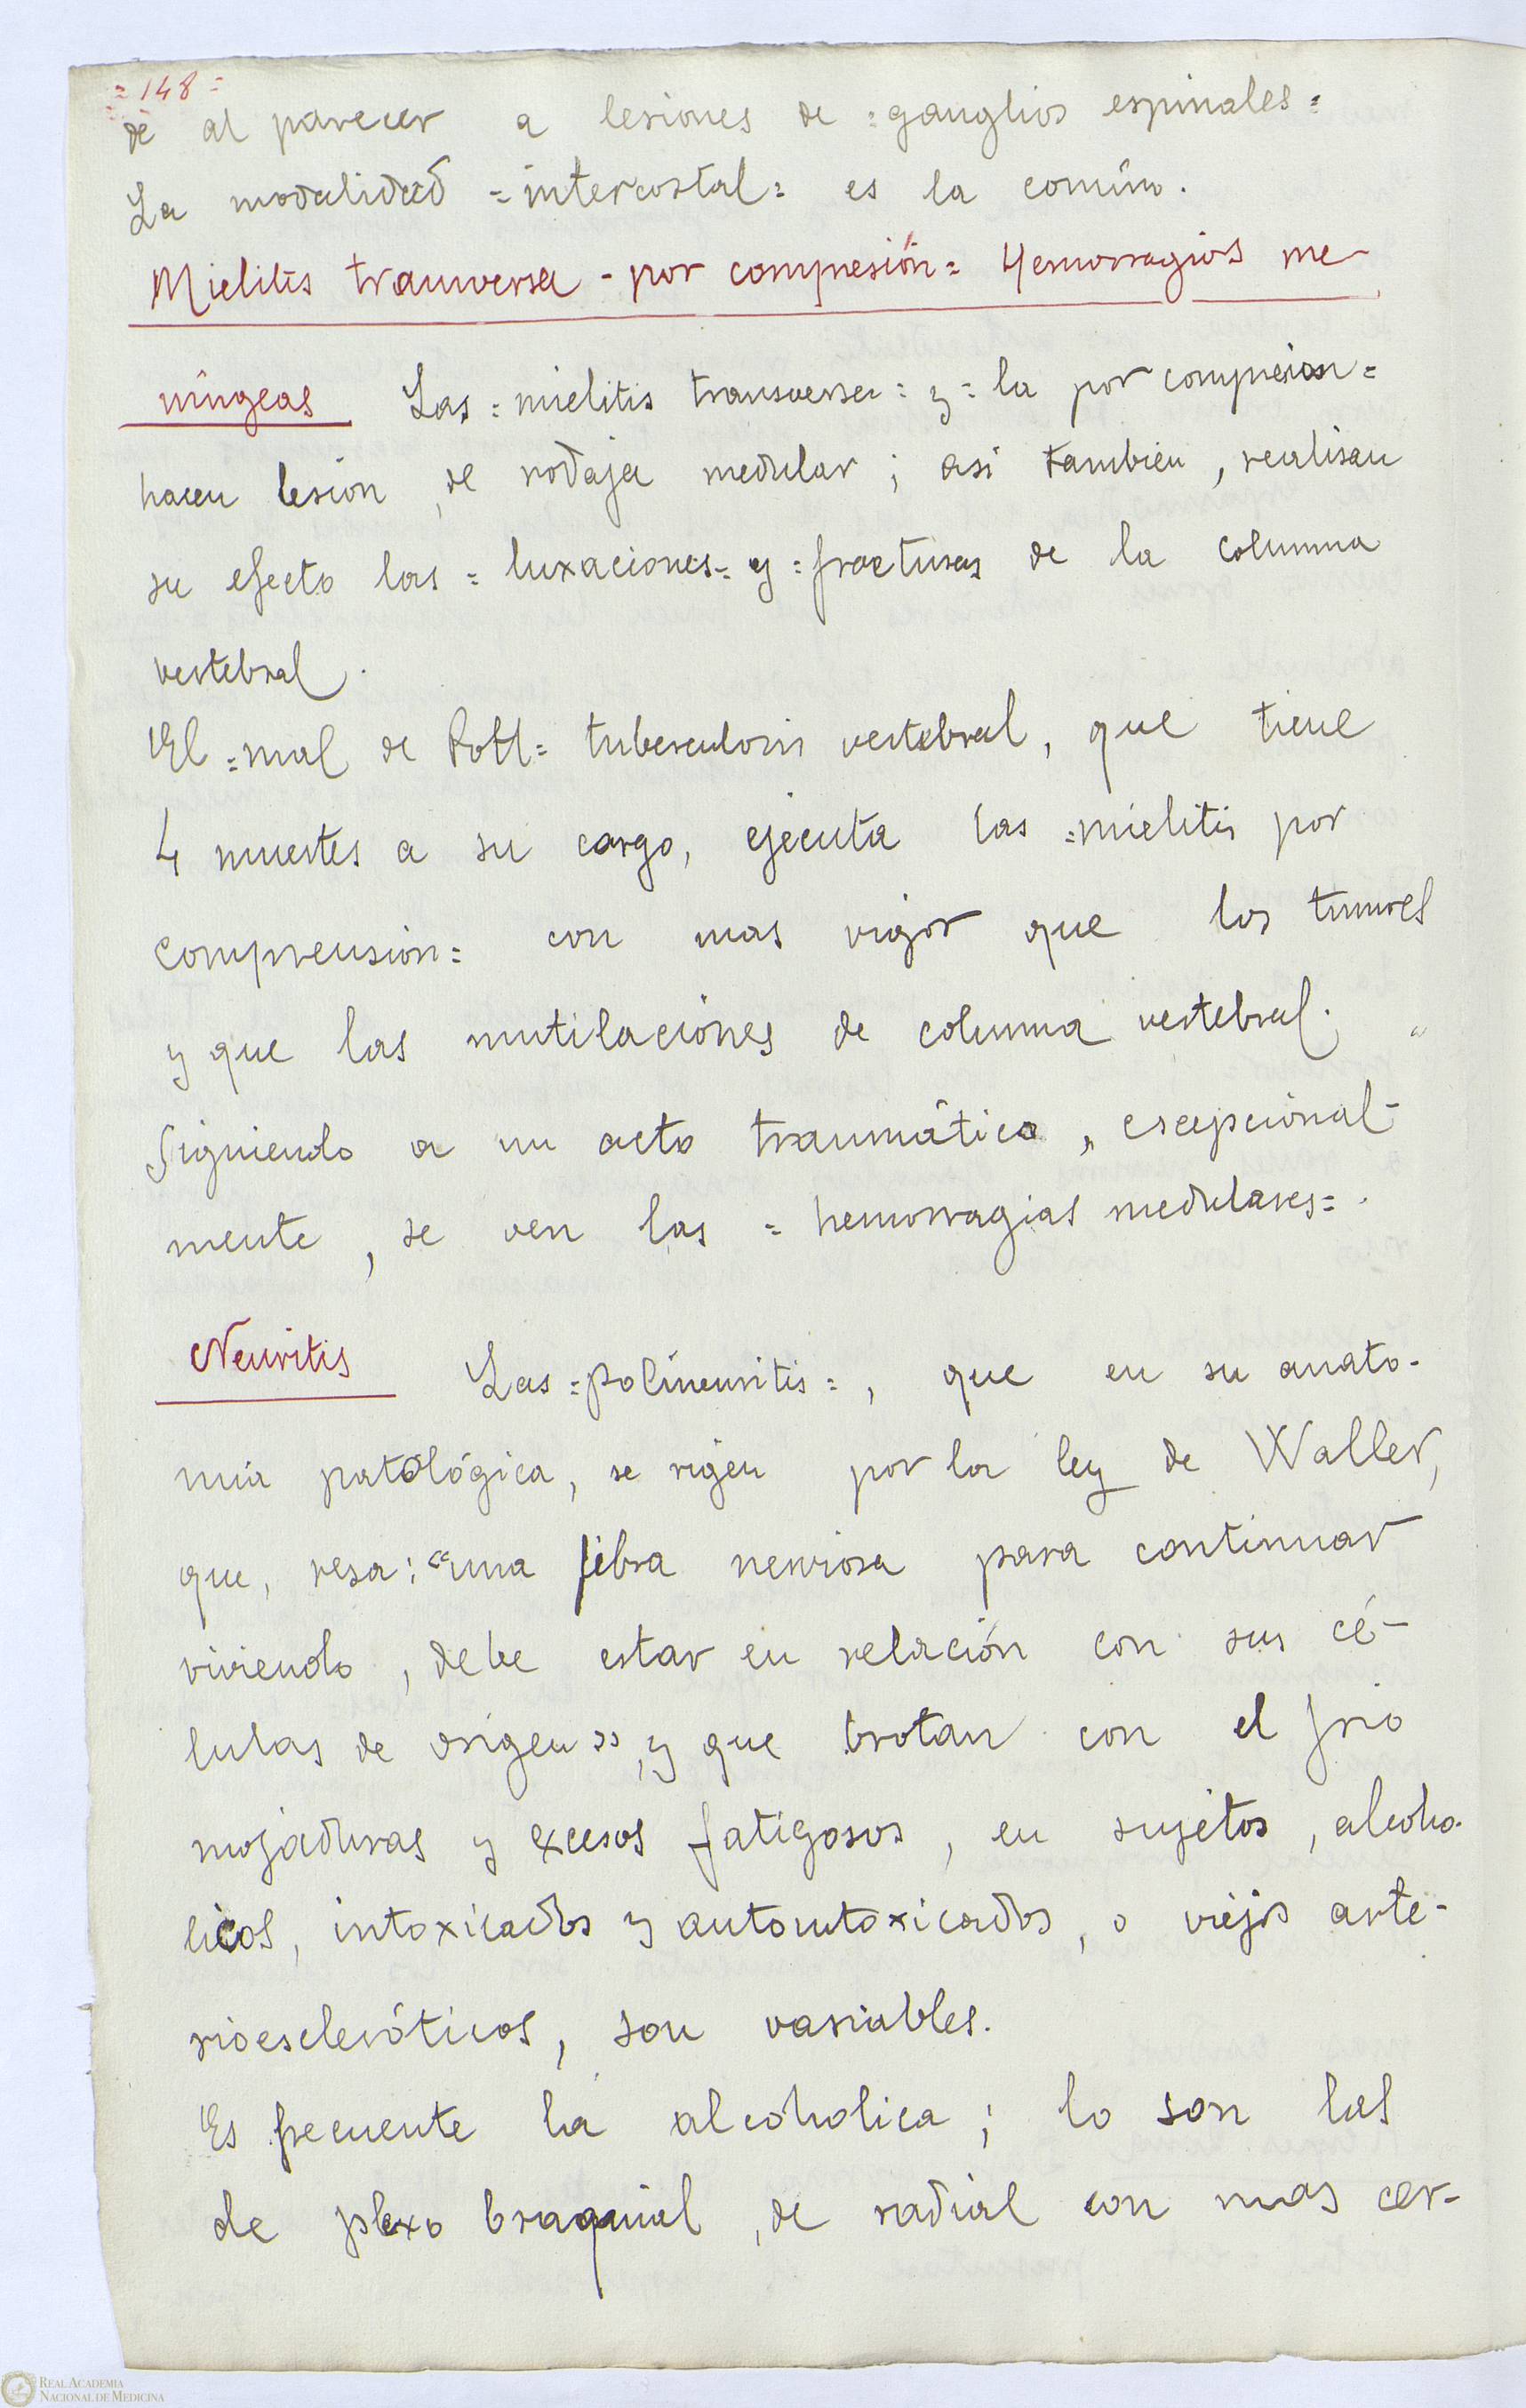 =148=
de al parecer a lesiones de =ganglios espinales=
La modalidad =intercostal= es la común.
Mielitis transversa - por compresión= Hemorragias me-
níngeas Las =mielitis transversa= y =la por compresion=
hacen lesion, de rodaja medular; asi tambien, realisan
su efecto las =luxaciones= y =fracturas de la columna
vertebral.
El =mal de Pott= tuberculosis vertebral, que tiene
4 muertes a su cargo, ejecuta las =mielitis por
comprension= con mas vigor que los tumores
y que las mutilaciones de columna vertebral.
Siguiendo a un acto traumático, escepcional-
mente, se ven las =hemorragias medulares=.
Neuritis Las =polineuritis=, que en su anato-
mia patológica, se rigen por la ley de Waller,
que, resa: "una fibra nerviosa para continuar
viviendo, debe estar en relación con sus cé-
lulas de origen", y que brotan con el frio
mojaduras y excesos fatigosos, en sujetos, alcoho-
licos, intoxicados y autointoxicados, o viejos arte-
rioescleróticos, son variables.
Es frecuente la alcoholica; lo son las
de plexo braquial, de radial con mas cer-
REAL ACADEMIA
NACIONAL DE MEDICINA